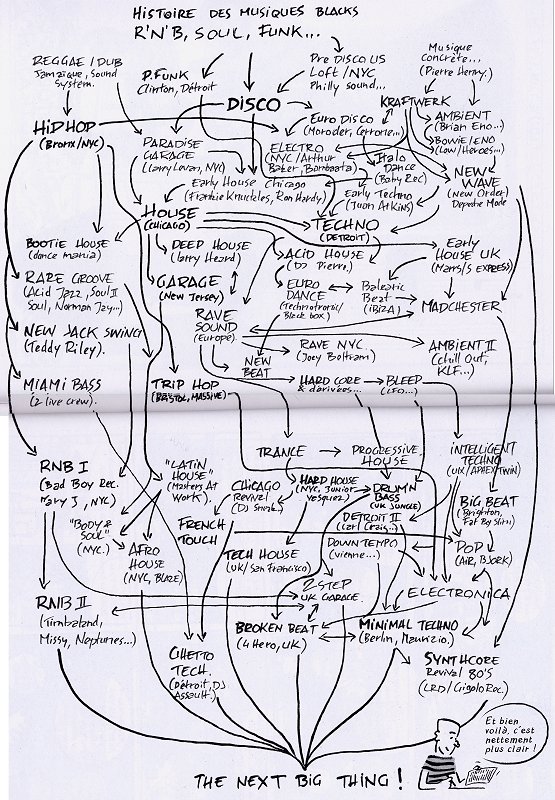 HISTOIRE DES MUSIQUES BLACKS
R'N'B, SOUL, FUNK...
REGGAE/DUB
Jamaïque, Sound
System.
P.FUNK
Clinton, Détroit
Pre DISCO US
Loft/NYC
Philly sound...
Musique
Concrète...
(Pierre Henry.)
DISCO
KRAFTWERK
HIPHOP
(Bronx/NYC)
PARADISE
GARAGE
(Larry Levan, NYC)
Euro DISCO
(Moroder, Cerrone...)
AMBIENT
(Brian Eno...)
BOWIE/ENO
(Low/Heroes...)
ELECTRO
(NYC/Arthur
Baker, Bambaata)
Italo
Dance
(Baby Rec)
NEW
WAVE
(New Order)
Depeche Mode
Early House Chicago
(Frankie Knuckles, Ron Hardy)
Early Techno
(Juan Atkins)
HOUSE
(CHICAGO)
TECHNO
(DETROIT)
BOOTIE HOUSE
(dance mania)
DEEP HOUSE
(Larry Heard)
ACID HOUSE
(DJ Pierre.)
Early
House UK
(Marrs/S'EXPRESS)
RARE GROOVE
(Acid Jazz, Soul II
Soul, Norman Jay...)
GARAGE
(New Jersey)
EURO
DANCE
(Technotronic/
Black box)
Balearic
Beat
(iBiZA)
MADCHESTER
NEW JACK SWING
(Teddy Riley).
RAVE
SOUND
(Europe).
NEW
BEAT
RAVE NYC.
(Joey Beltram)
AMBIENT II
(Chill Out,
KLF...)
MIAMI BASS
(2 live crew).
TRIP HOP
(BRISTOL, MASSIVE)
HARD CORE
& dérivées...
BLEEP
(LFO...)
TRANCE
PROGRESSIVE
HOUSE
INTELLIGENT
TECHNO
(UK/APHEX TWIN)
RNB I
(Bad Boy Rec.
Mary J, NYC)
"LATIN
HOUSE"
(Masters At
Work).
CHICAGO
Revival
HARD HOUSE
(NYC, Junior
Vasquez)
DRUM'N
BASS
(UK JUNGLE)
BIG BEAT
(Brighton,
Fat Boy Slim)
"BODY &
SOUL"
(NYC.)
FRENCH
TOUCH
DETROIT II
(Carl Craig...)
AFRO
HOUSE
(NYC, BLAZE)
TECH HOUSE
(UK/San Francisco)
DOWNTEMPO
(Vienne...)
POP
(AIR, BJORK)
RNB II
(Timbaland,
Missy, Neptunes...)
2 STEP
UK GARAGE
ELECTRONICA
BROKEN BEAT
(4 Hero, UK)
MINIMAL TECHNO
(Berlin, Maurizio.)
GHETTO
TECH.
(Détroit, DJ
Assault.)
SYNTHCORE
Revival 80'S
(Gigolo Rec.)
Et bien
voilà, c'est
nettement
plus clair !
THE NEXT BIG THING !